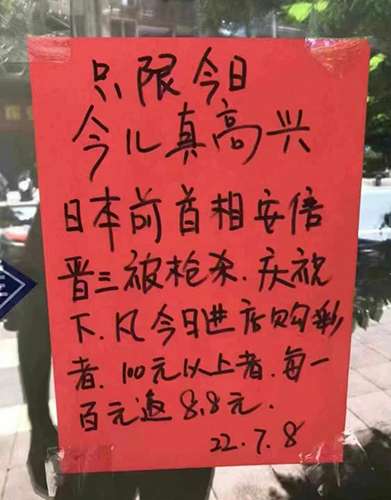 只限今日
今儿真高兴
日本前首相安倍
晋三被枪杀.庆祝
下.凡今日进店购彩
者.100元以上者.每一
百元返8.8元.
22.7.8